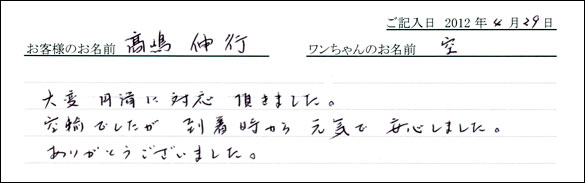 ご記入日 2012年4月29日
お客様のお名前 髙嶋 伸行 ワンちゃんのお名前 空
大変 円滑に 対応 頂きました。
空輸でしたが 到着時から 元気で 安心しました。
ありがとうございました。